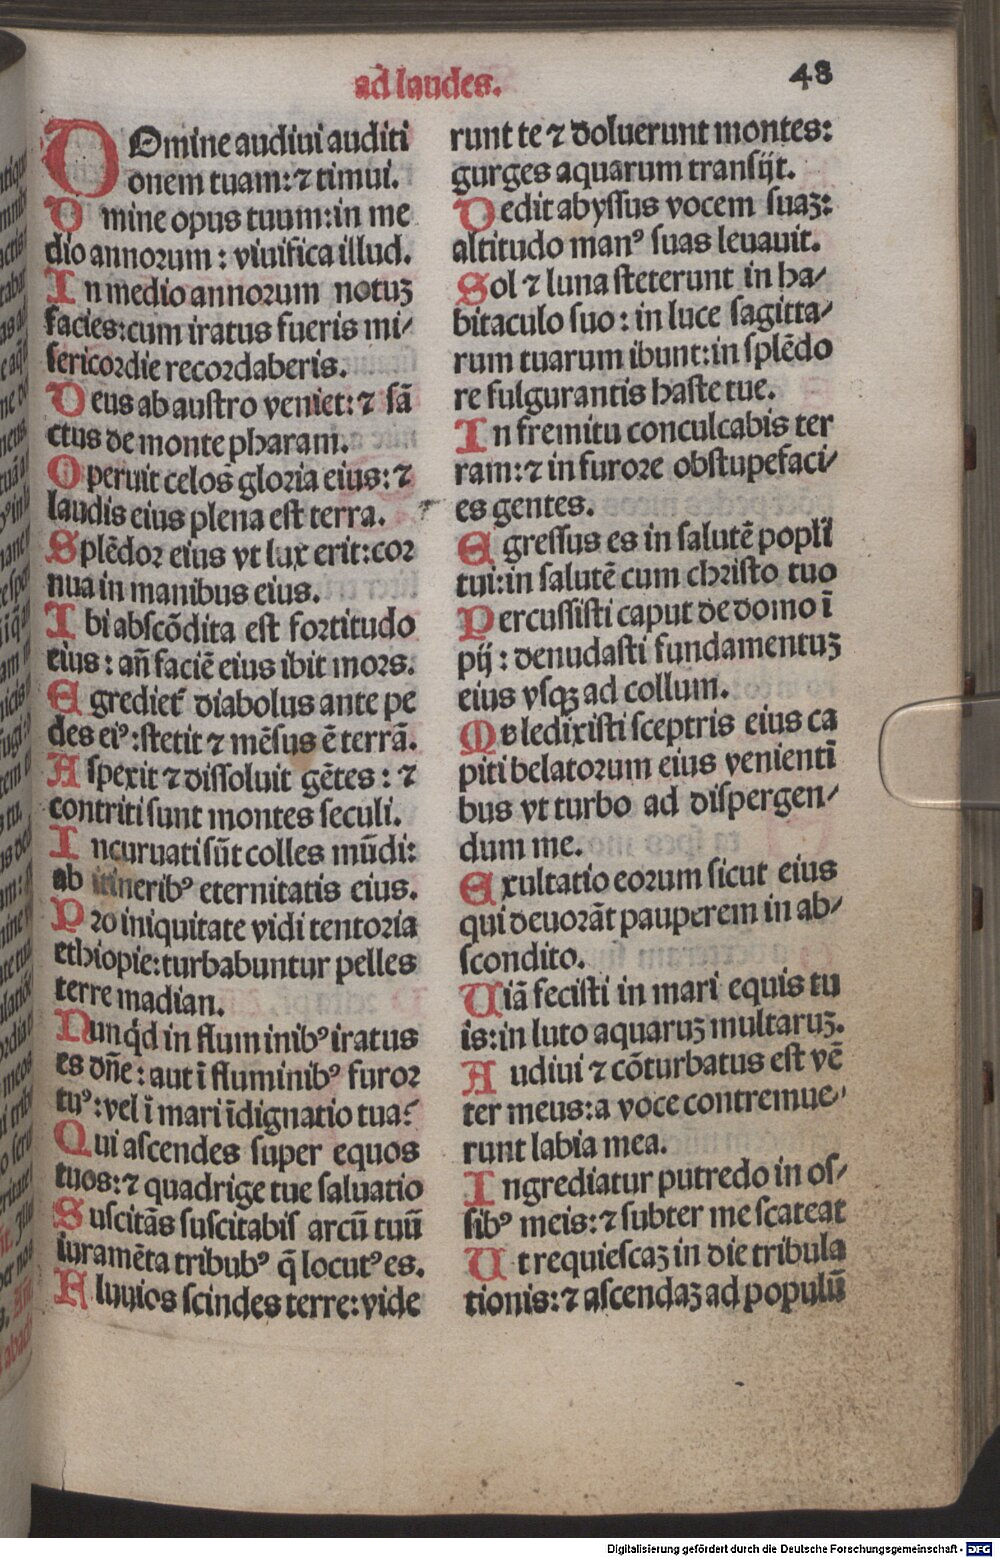 ad laudes.
48
DOmine audiui auditi
onem tuam: ⁊ timui.
D mine opus tuum: in me
dio annorum : viuifica illud.
In medio annorum notuȝ
facies: cum iratus fueris mi⸗
sericordie recordaberis.
Deus ab austro veniet: ⁊ sā
ctus de monte pharam.
Operuit celos gloria eius: ⁊
laudis eius plena est terra.
Splēdor eius vt lux erit: cor
nua in manibus eius.
Ibi abscōdita est fortitudo
eius : an̄ faciē eius ibit mors.
Egrediet᷑ diabolus ante pe
des eiꝰ : stetit ⁊ mēsus ē terrā.
Aspexit ⁊ dissoluit gētes : ⁊
contriti sunt montes seculi.
Incuruati sūt colles mūdi:
ab itineribꝰ eternitatis eius.
Pro iniquitate vidi tentoria
ethiopie: turbabuntur pelles
terre madian.
Nunqd̄ in fluminibꝰ iratus
es dn̄e : aut ī fluminibꝰ furor
tuꝰ : vel ī mari īdignatio tua?
Qui ascendes super equos
tuos: ⁊ quadrige tue saluatio
Suscitās suscitabis arcū tuū
iuramēta tribubꝰ q̄ locutꝰ es.
Aluuios scindes terre: vide
runt te ⁊ doluerunt montes:
gurges aquarum transijt.
Dedit abyssus vocem suaȝ:
altitudo manꝰ suas leuauit.
Sol ⁊ luna steterunt in ha⸗
bitaculo suo : in luce sagitta⸗
rum tuarum ibunt: in splēdo
re fulgurantis haste tue.
In fremitu conculcabis ter
ram: ⁊ in furore obstupefaci⸗
es gentes.
Egressus es in salutē popli̅
tui: in salutē cum christo tuo
Percussisti caput de domo ī
pij : denudasti fundamentuȝ
eius vsqȝ ad collum.
Maledixisti sceptris eius ca
piti belatorum eius venientī
bus vt turbo ad dispergen⸗
dum me.
Exultatio eorum sicut eius
qui deuorāt pauperem in ab⸗
scondito.
Uiā fecisti in mari equis tu
is: in luto aquaruȝ multaruȝ.
Audiui ⁊ cōturbatus est vē
ter meus: a voce contremue⸗
runt labia mea.
Ingrediatur putredo in os⸗
sibꝰ meis: ⁊ subter me scateat
Ut requiescaȝ in die tribula
tionis: ⁊ ascendaȝ ad populū
Digitalisierung gefördert durch die Deutsche Forschungsgemeinschaft - DFG